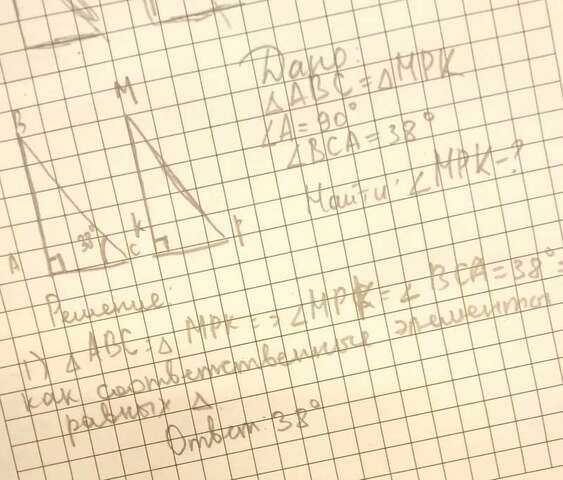 Дано:
△ABC = △MPK
∠A = 90°
∠BCA = 38°
Найти: ∠MPK-?
B
M
A
38°
C
K
P
Решение:
1) △ABC = △MPK => ∠MPK = ∠BCA = 38° =
как соответственные элементы
равных △
Ответ: 38°